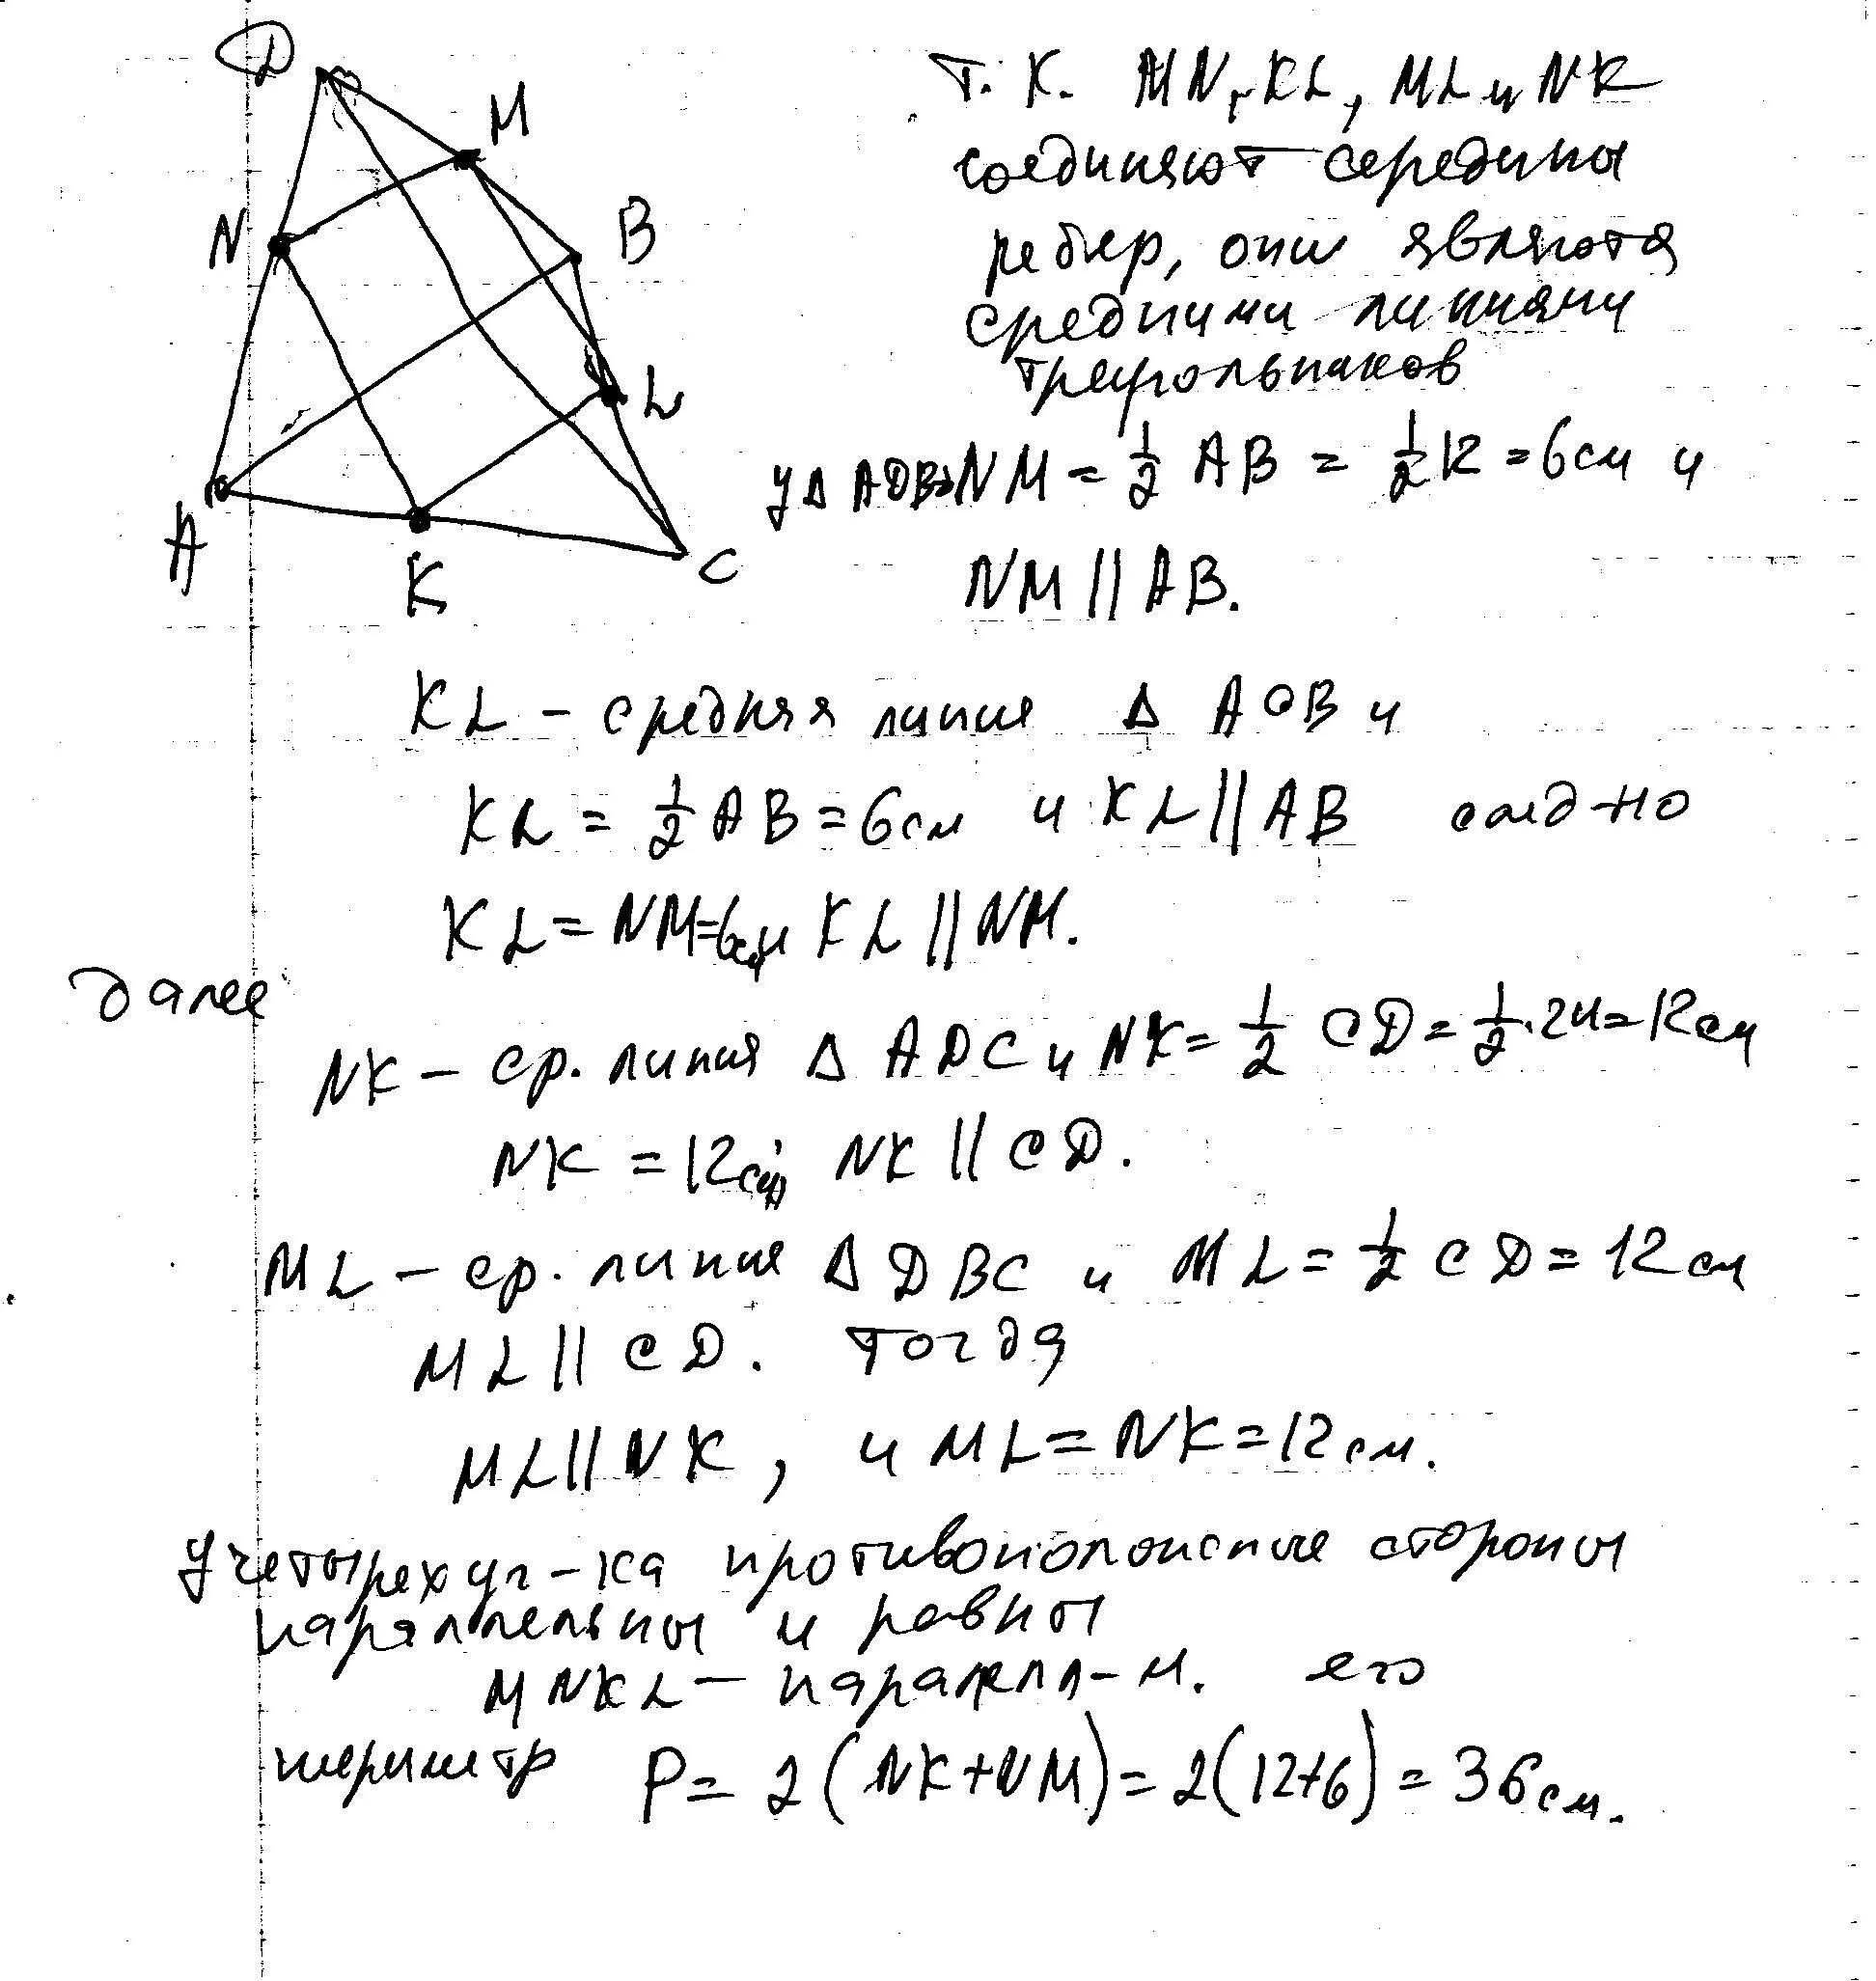 D
M
N
B
L
A
K
C
Т. К. MN, KL, ML и NK
соединяют середины
ребер, они являются
средними линиями
треугольников
У Δ ADB NM = 1/2 AB = 1/2 12 = 6 см и
NM || AB.
KL - средняя линия Δ ACB и
KL = 1/2 AB = 6 см и KL || AB след-но
KL = NM = 6 см и KL || NM.
далее
NK - ср. линия Δ ADC и NK = 1/2 CD = 1/2 · 24 = 12 см
NK = 12 см, NK || CD.
ML - ср. линия Δ DBC и ML = 1/2 CD = 12 см
ML || CD. Тогда
ML || NK, и ML = NK = 12 см.
У четырехуг-ка противоположные стороны
параллельны и равны
MNKL - паралелл-м. его
периметр P = 2 (NK + NM) = 2 (12+6) = 36 см.